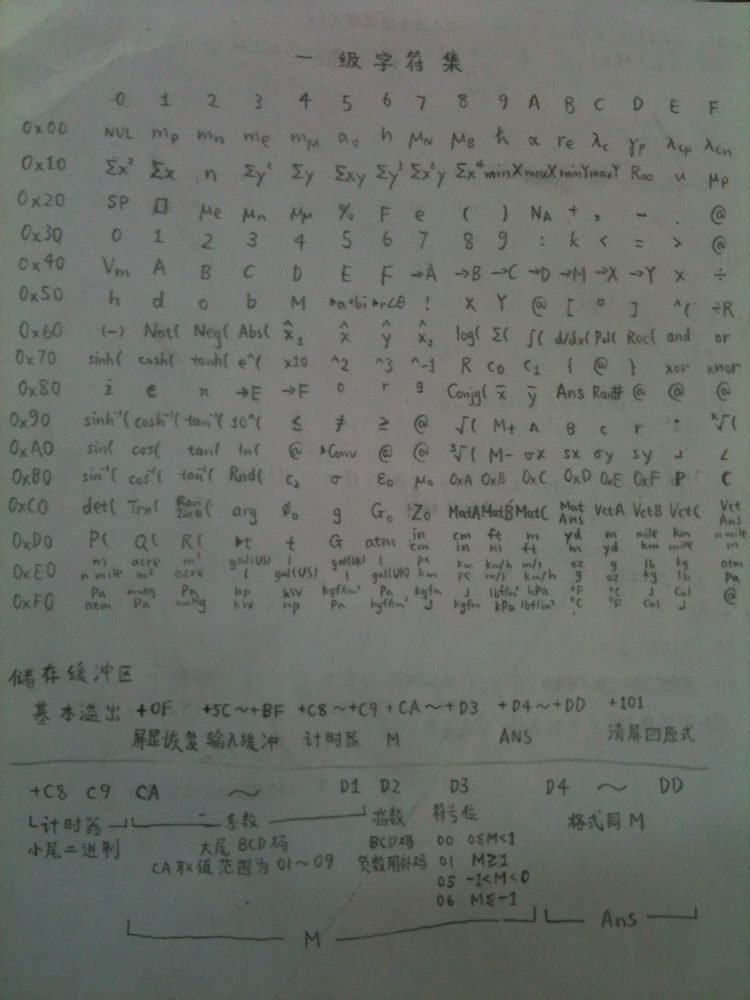 一级字符集
0 1 2 3 4 5 6 7 8 9 A B C D E F
0x00 NUL mp mn me mμ a₀ h μN μB ħ α re λc γp λcp λcn
0x10 Σx² Σx n Σy² Σy Σxy Σy³ Σx²y Σx⁴ minX maxX minY maxY R∞ u μp
0x20 SP μe μn μμ % F e ( ) NA + , - . @
0x30 0 1 2 3 4 5 6 7 8 9 : k < = > @
0x40 Vm A B C D E F →A →B →C →D →M →X →Y × ÷
0x50 h d o b M ▸a+bi ▸r∠θ ! X Y @ [ ° ] ^( ÷R
0x60 (-) Not( Neg( Abs( x̂₁ x̂ ŷ x̂₂ log( Σ( ∫( d/dx( Pol( Rec( and or
0x70 sinh( cosh( tanh( e^( ×10 ^2 ^3 ^-1 R c₀ c₁ { @ } xor xnor
0x80 i e π →E →F o r g Conjg( x̄ ȳ Ans Ran# @ @ @
0x90 sinh⁻¹( cosh⁻¹( tan⁻¹( 10^( ≤ ≠ ≥ @ √( M+ A B c r ˣ√(
0xA0 sin( cos( tan( ln( @ ▸Conv @ @ ³√( M- σx sx σy sy ⌟ ∠
0xB0 sin⁻¹( cos⁻¹( tan⁻¹( Rnd( c₂ σ ε₀ μ₀ 0xA 0xB 0xC 0xD 0xE 0xF P C
0xC0 det( Trn( RanInt#( arg ϕ₀ g G₀ Z₀ MatA MatB MatC MatAns VctA VctB Vct( VctAns
0xD0 P( Q( R( ▸t t G atm in ft m yd m mile km n mile
cm cm in m ft m yd km mile m
0xE0 m acre m² gal(US) l gal(UK) l pc km km/h m/s oz g lb kg atm
n mile m² acre l gal(US) l gal(UK) km pc m/s km/h g oz kg lb Pa
0xF0 Pa mmHg Pa hp kW kgf/cm² Pa kgfm J lbf/in² kPa °F °C J Cal @
atm Pa mmHg kW hp Pa kgf/cm² J kgfm kPa lbf/in² °C °F Cal J
储存缓冲区
基本溢出 +0F +5C～+BF +C8～+C9 +CA～+D3 +D4～+DD +101
屏显恢复 输入缓冲 计时器 M ANS 清屏回原式
+C8 C9 CA ～ D1 D2 D3 D4 ～ DD
计时器 系数 指数 符号位 格式同M
小尾二进制 大尾BCD码 BCD码 00 0≤M<1
CA取值范围为01～09 负数用补码 01 M≥1
05 -1<M<0
06 M≤-1
M Ans